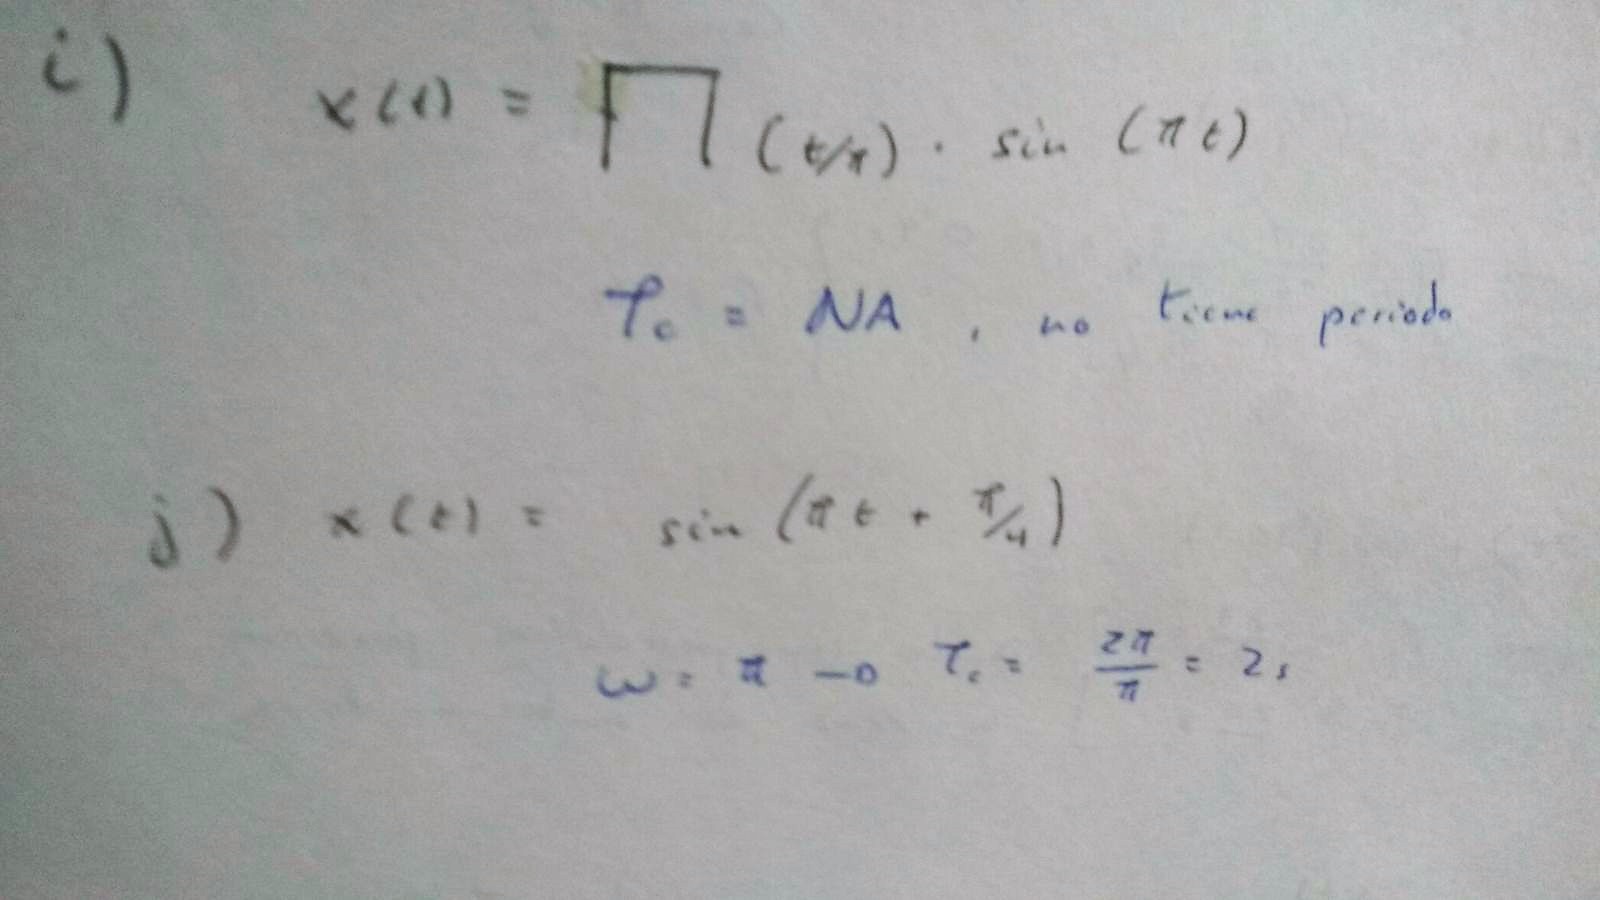 i) x(t) = Π (t/π) · sin (π t)
T₀ = NA , no tiene periodo
j) x(t) = sin (π t + π/4)
ω = π → T₀ = 2π/π = 2s